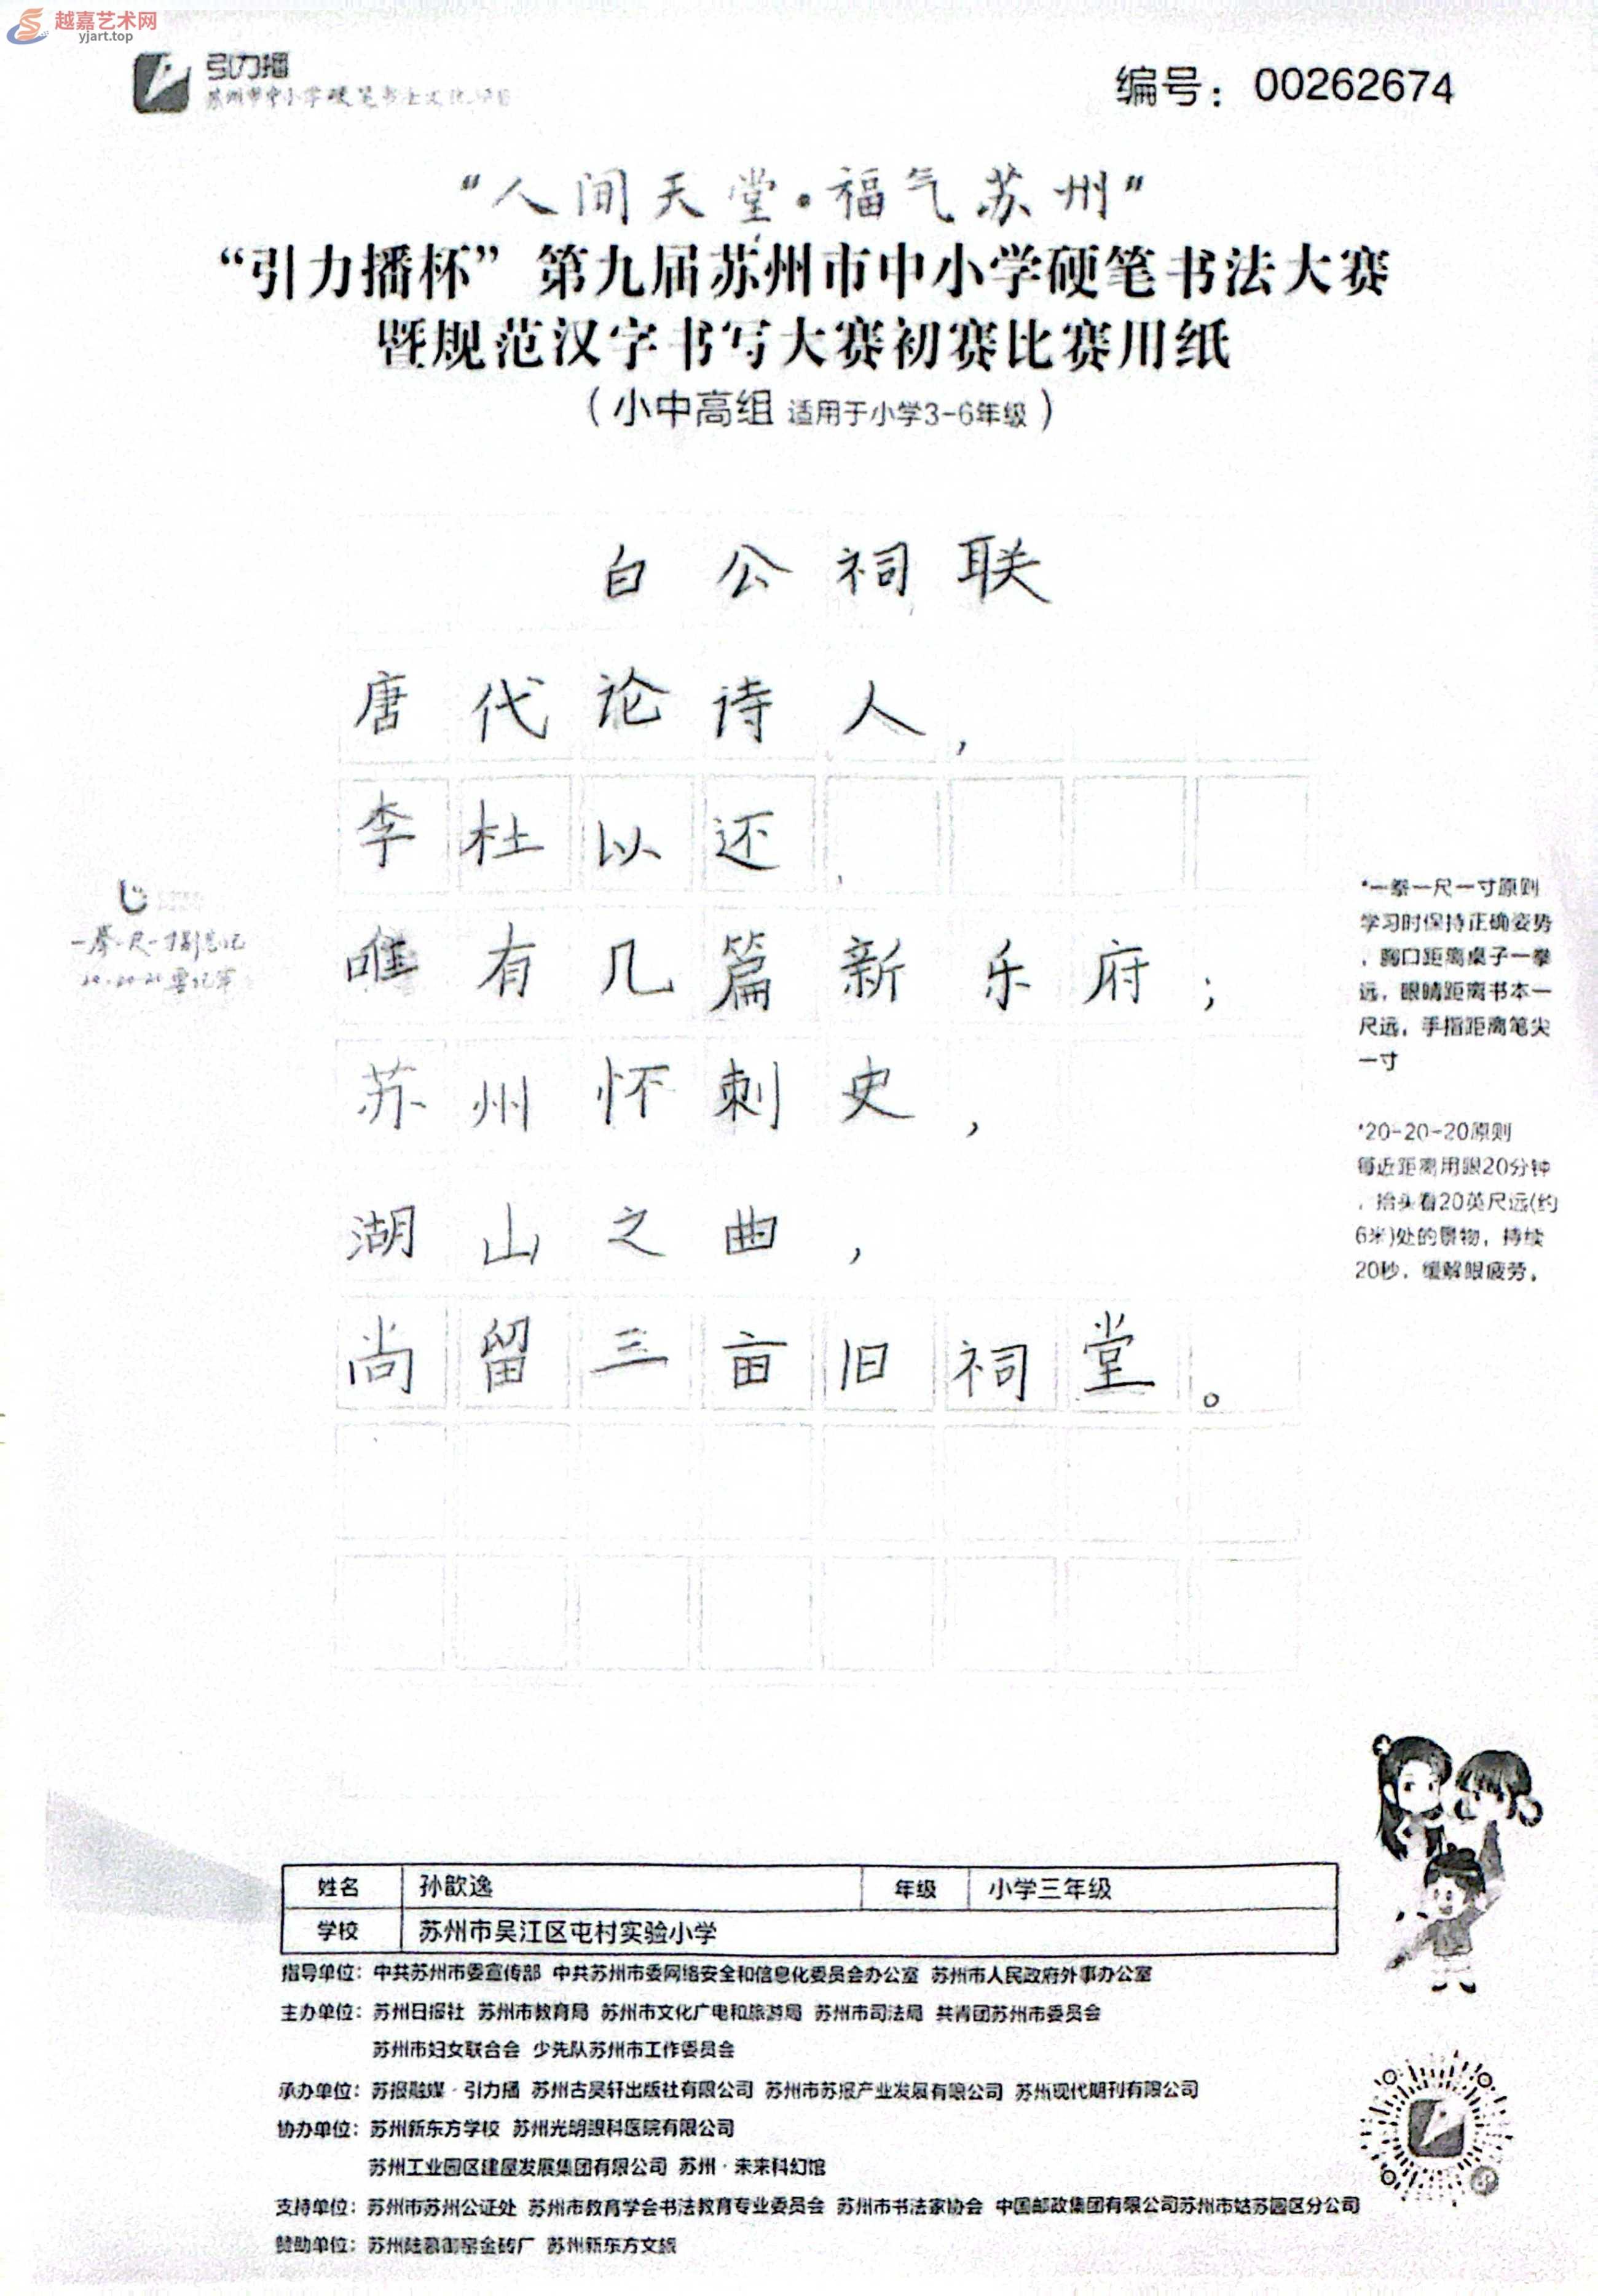 越嘉艺术网
yjart.top
引力播
编号：00262674
“人间天堂·福气苏州”
“引力播杯”第九届苏州市中小学硬笔书法大赛
暨规范汉字书写大赛初赛比赛用纸
（小中高组 适用于小学3-6年级）
白公祠联
唐代论诗人，
李杜以还，
唯有几篇新乐府；
苏州怀刺史，
湖山之曲，
尚留三亩旧祠堂。
*一拳一尺一寸原则
学习时保持正确姿势
，胸口距离桌子一拳
远，眼睛距离书本一
尺远，手指距离笔尖
一寸
*20-20-20原则
每近距离用眼20分钟
，抬头看20英尺远(约
6米)处的景物，持续
20秒，缓解眼疲劳。
姓名 孙歆逸 年级 小学三年级
学校 苏州市吴江区屯村实验小学
指导单位：中共苏州市委宣传部 中共苏州市委网络安全和信息化委员会办公室 苏州市人民政府外事办公室
主办单位：苏州日报社 苏州市教育局 苏州市文化广电和旅游局 苏州市司法局 共青团苏州市委员会
苏州市妇女联合会 少先队苏州市工作委员会
承办单位：苏报融媒·引力播 苏州古吴轩出版社有限公司 苏州市苏报产业发展有限公司 苏州现代期刊有限公司
协办单位：苏州新东方学校 苏州光明眼科医院有限公司
苏州工业园区建屋发展集团有限公司 苏州·未来科幻馆
支持单位：苏州市苏州公证处 苏州市教育学会书法教育专业委员会 苏州市书法家协会 中国邮政集团有限公司苏州市姑苏园区分公司
赞助单位：苏州陆慕御窑金砖厂 苏州新东方文旅